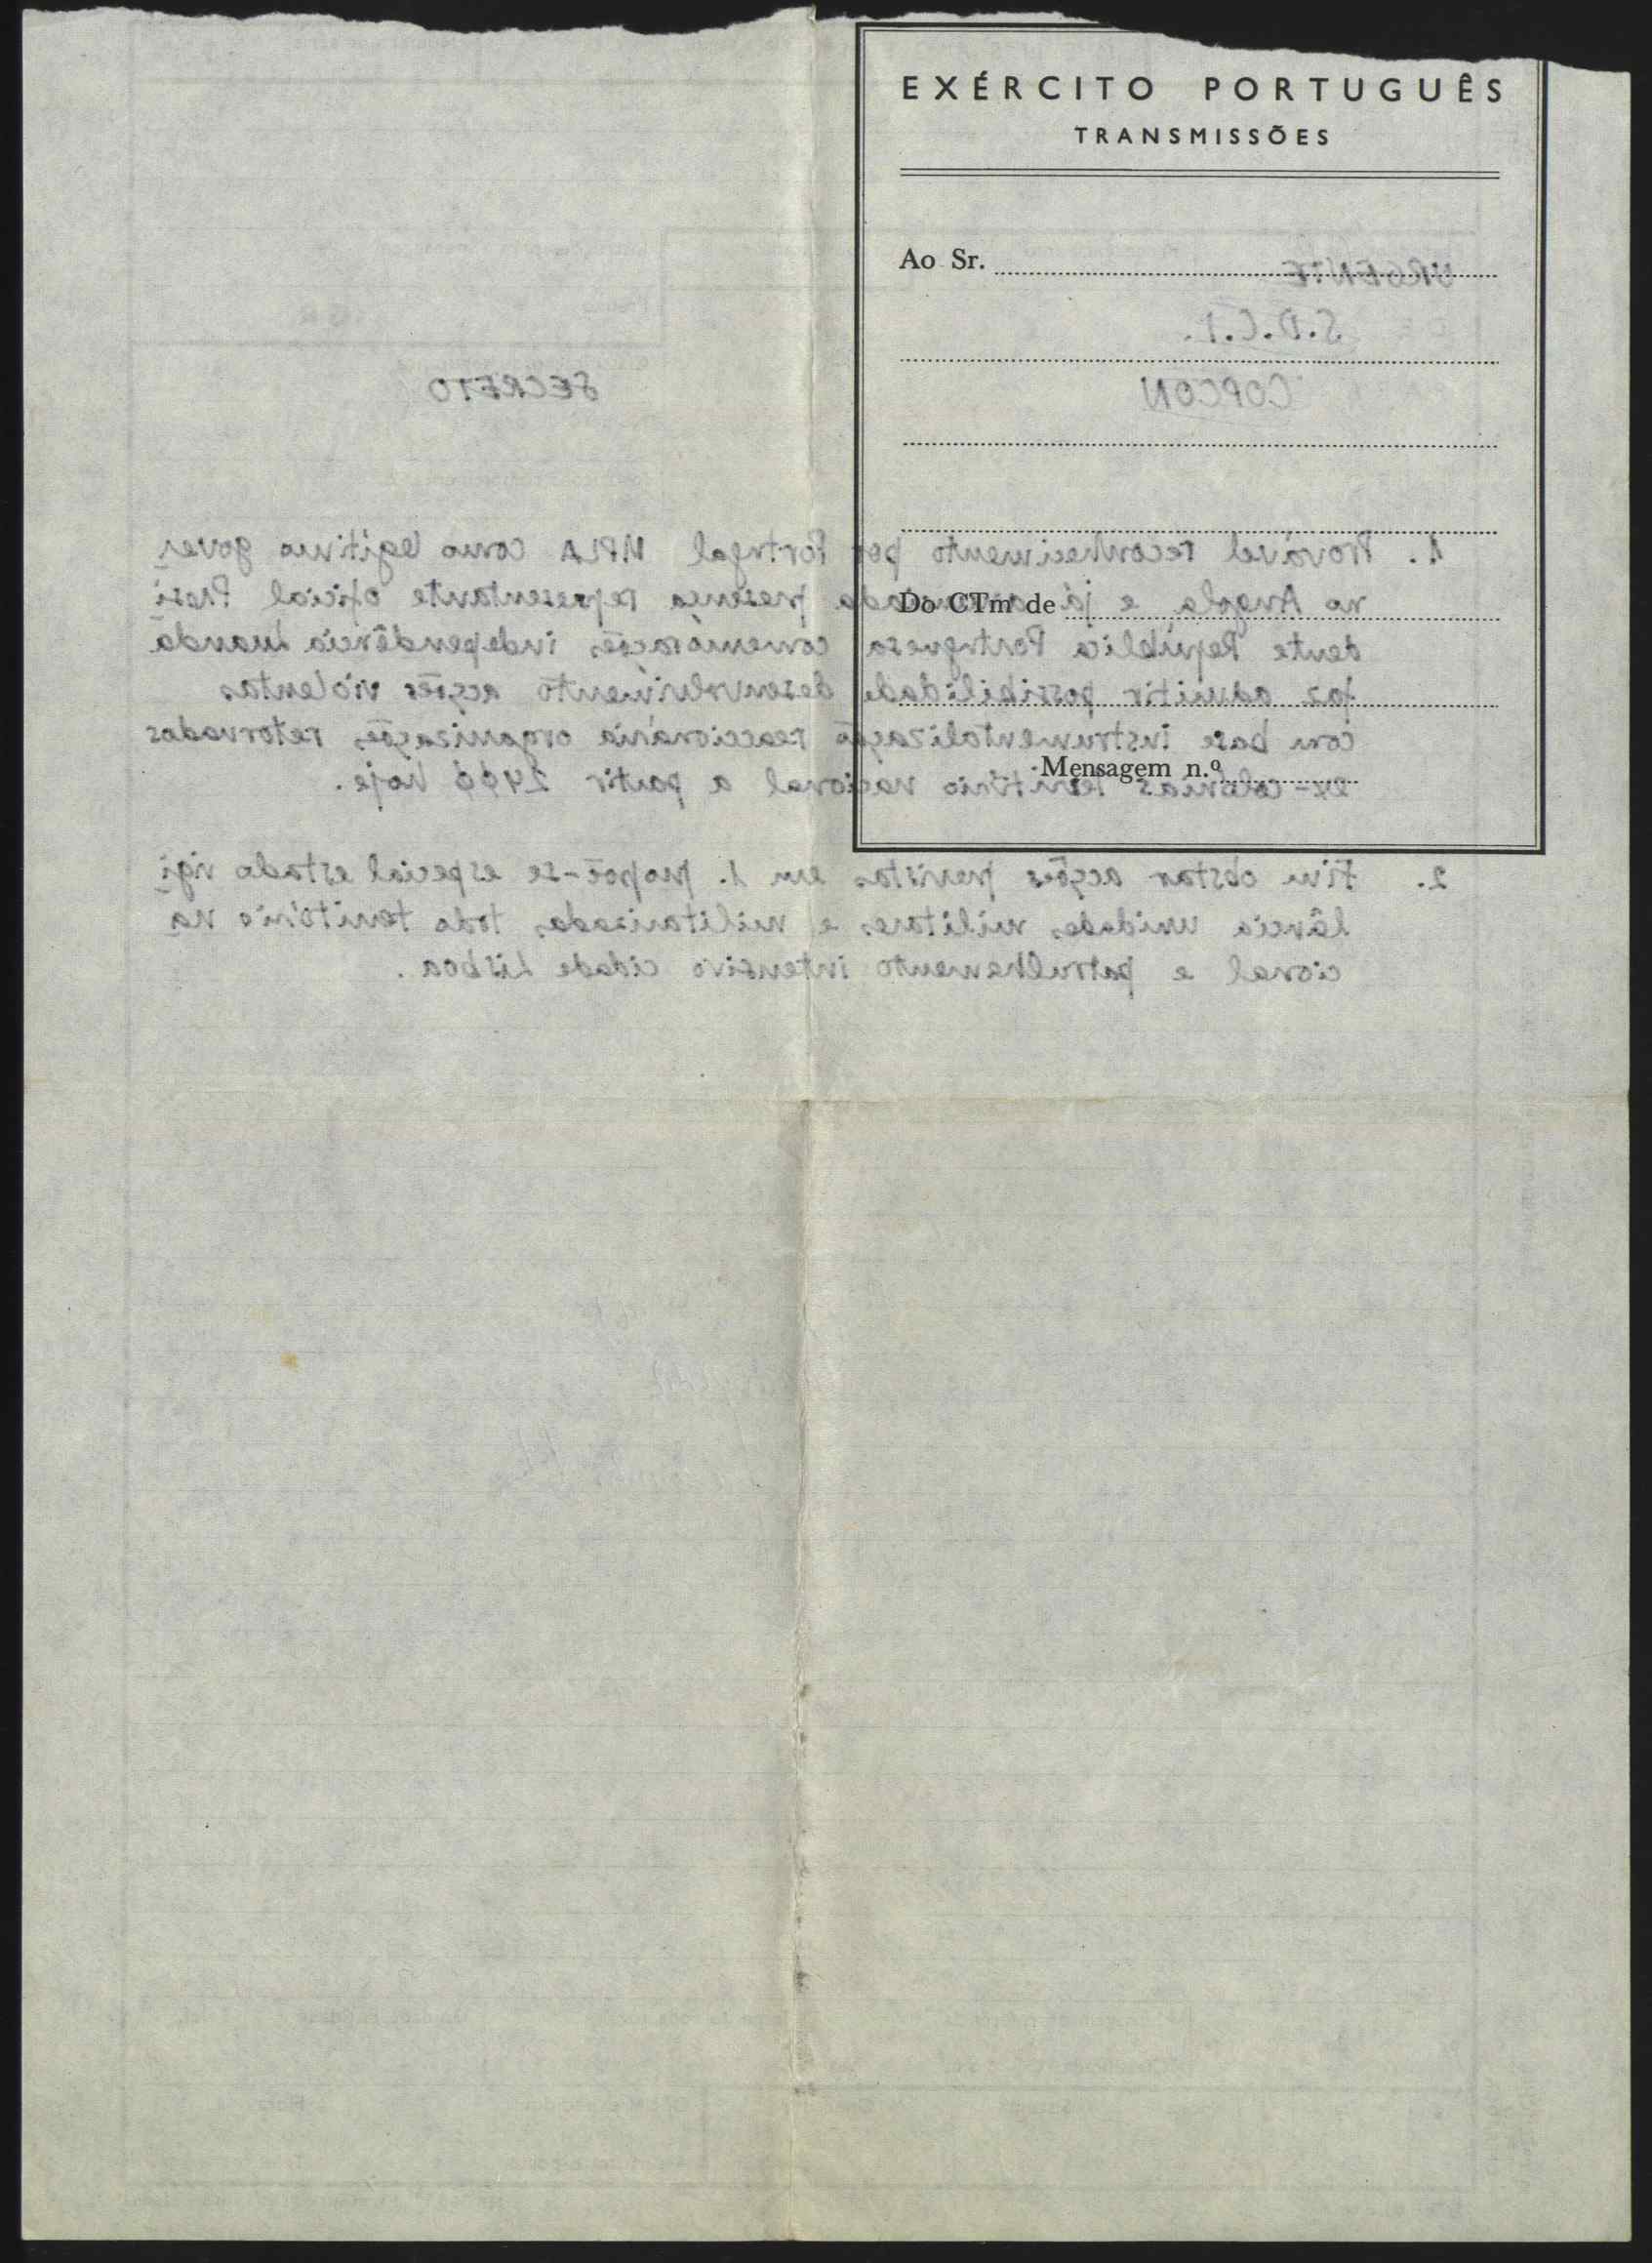 EXÉRCITO PORTUGUÊS
TRANSMISSÕES
Ao Sr.
URGENTE
S.D.C.I.
COPCON
SECRETO
Do CTm de
Mensagem n.º
1. Provável reconhecimento por Portugal MPLA como legítimo gover
no Angola e já presença representante oficial Presi
dente República Portuguesa comemorações independência Luanda
faz admitir possibilidade desenvolvimento acções violentas
com base instrumentalização reaccionária organizações retornados
ex-colónias território nacional a partir 2400 hoje.
2. Fim obstar acções previstas em 1. propõe-se especial estado vigi
lância unidades militares e militarizadas todo território na
cional e patrulhamento intensivo cidade Lisboa.